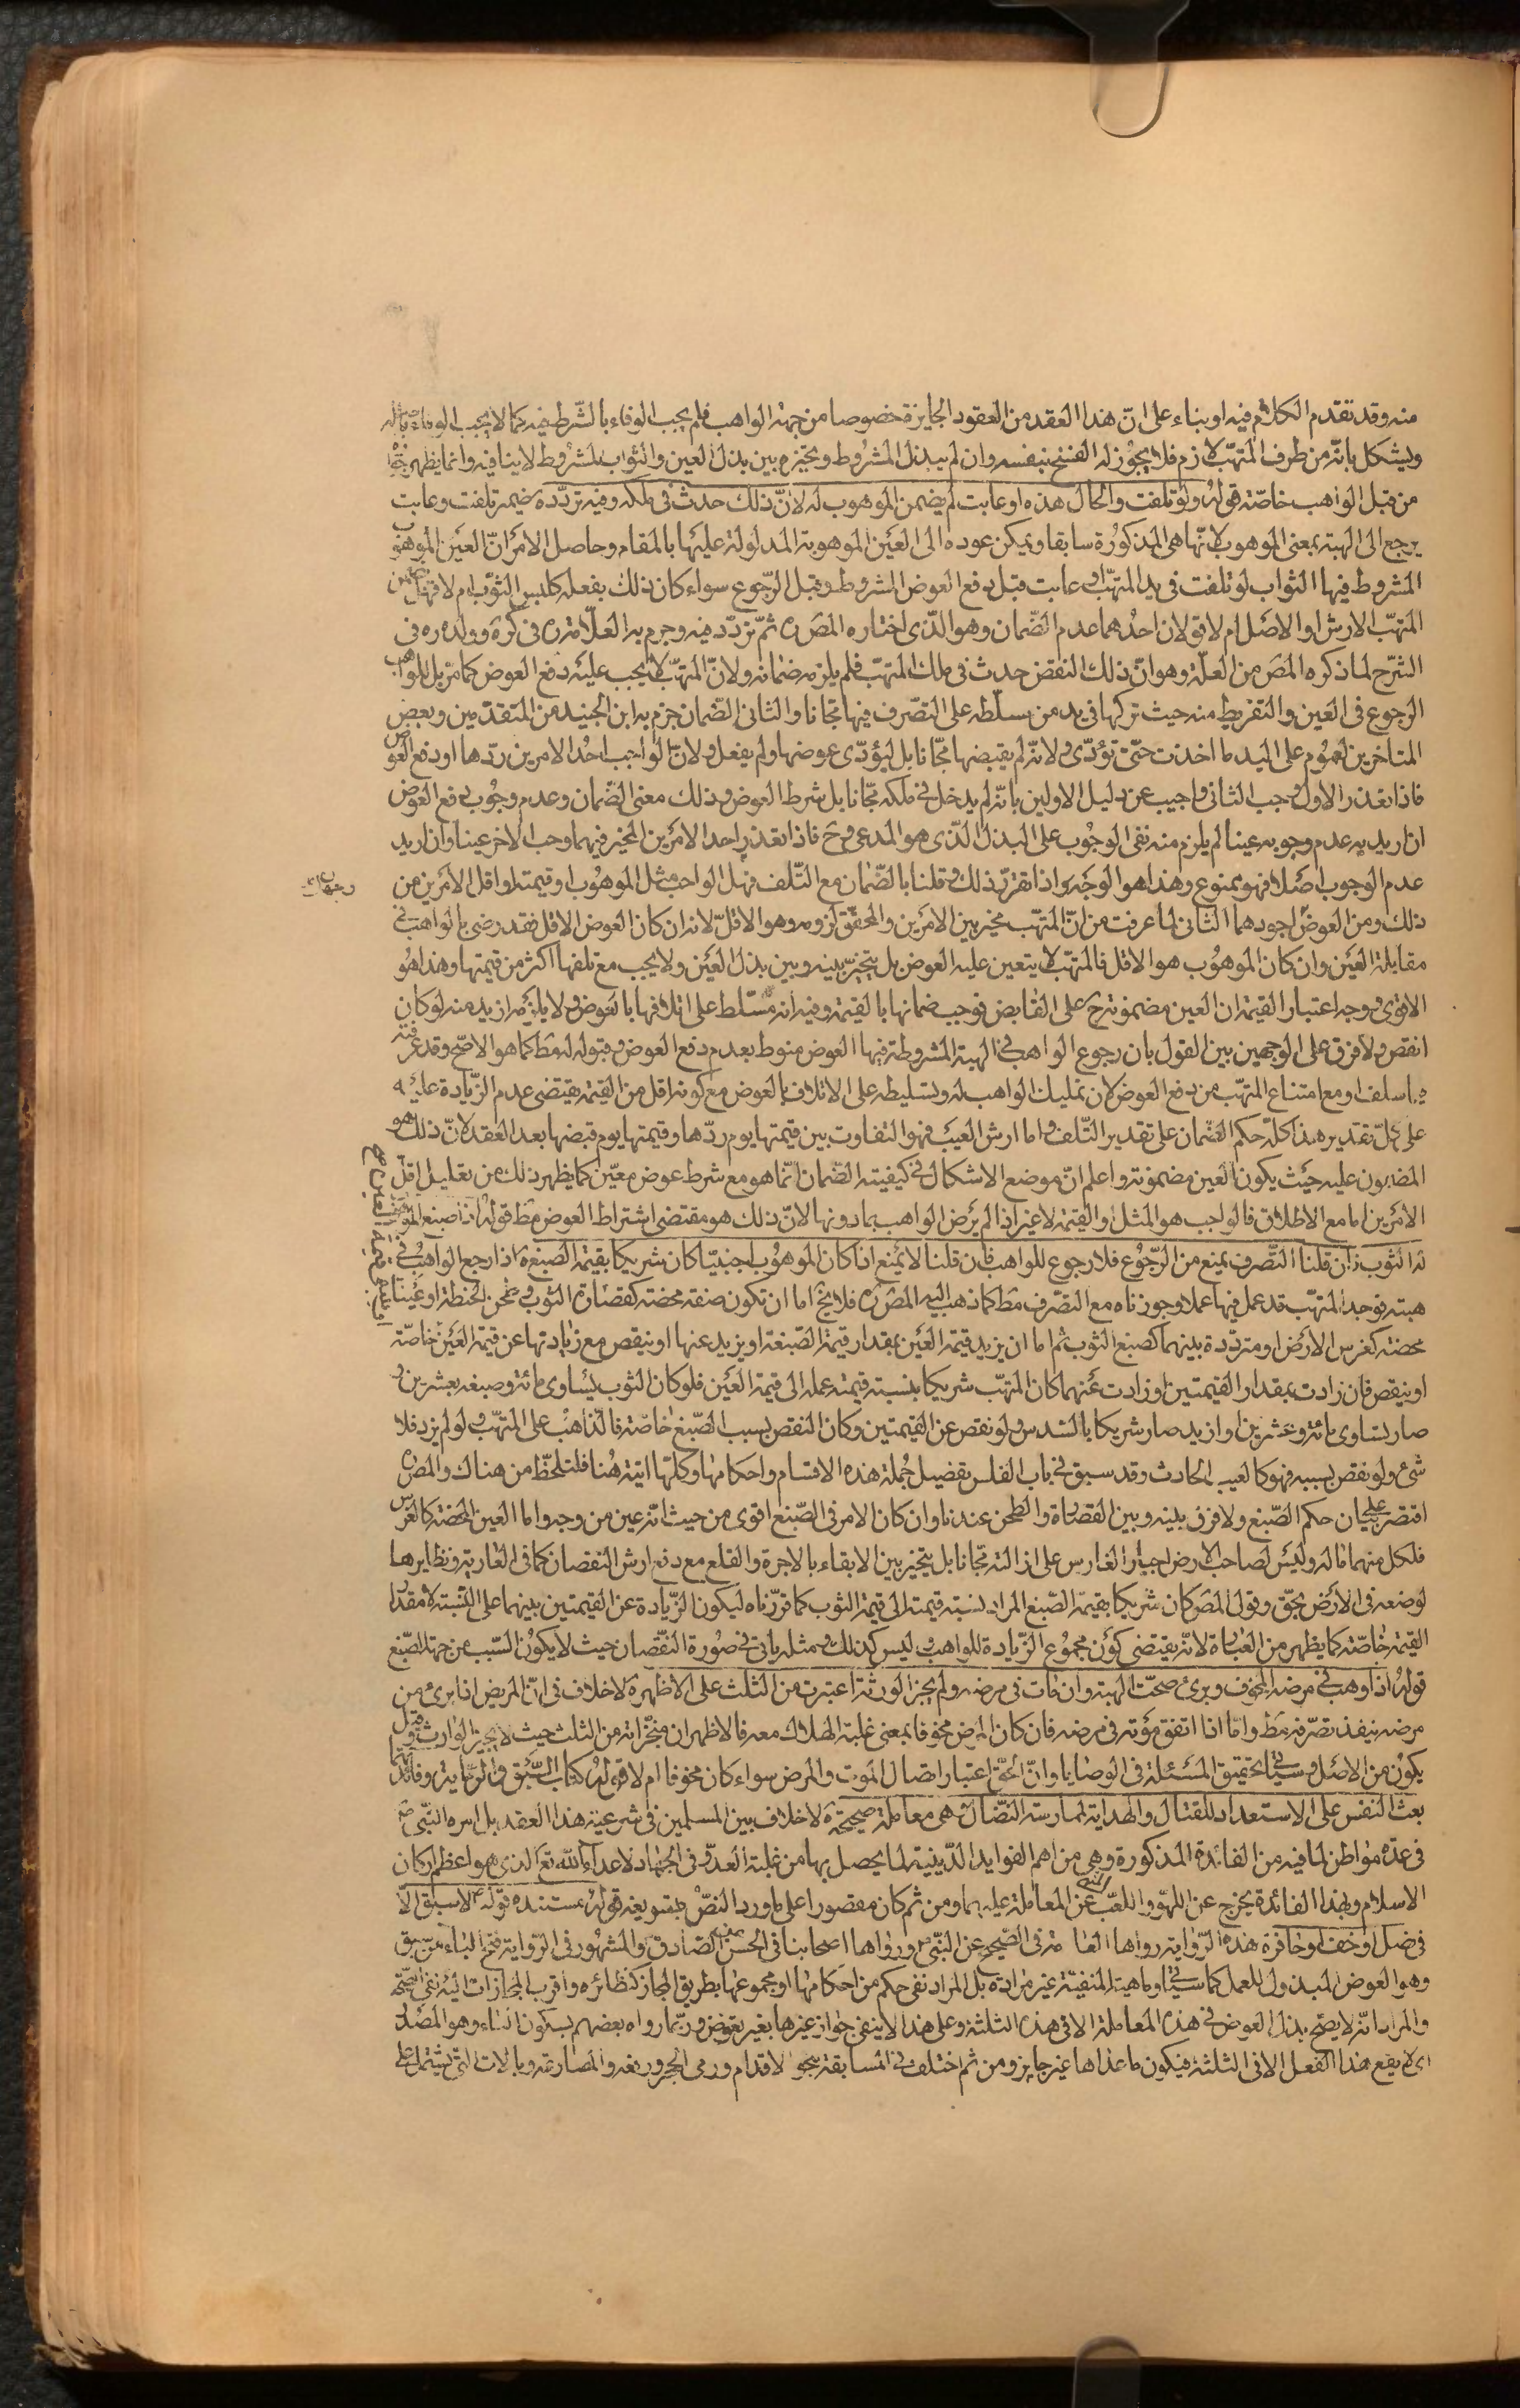 منه وقد تقدم الكلام فيه او بناء على انّ هذا العقد من العقود الجايزة خصوصا من جهة الواهب فلم يجب الوفاء بالشّرط فيه كما لا يجب الوفاء باصله
ويشكل بانّه من طرف المتهّب لازم فلا يجوز له الفسخ بنفسه وان لم يبذل المشروط ويتخيّر بين بذل العين والثواب المشروط لا ينافيه وانما يظهر
من قبل الواهب خاصّة قوله ولو تلفت والحال هذه او عابت لم يضمن الموهوب له لانّ ذلك حدث في ملكه وفيه تردّد ضمير تلفت وعابت
يرجع الى الهبة بمعنى الموهوب لانّها هي المذكورة سابقا ويمكن عوده الى العين الموهوبة المدلولة عليها بالمقام وحاصل الامر انّ العين الموهوبة
المشروط فيها الثواب لو تلفت في يد المتهّب او عابت قبل دفع العوض المشروط وقبل الرّجوع سواء كان ذلك بفعله كلبس الثوب ام لا فهل يضمن
المتهّب الارش او الاصل ام لا قولان احدهما عدم الضّمان وهو الّذي اختاره المص ره ثمّ تردّد فيه وجزم به العلّامة ره في كرة وولده ره في
الشرح لما ذكره المص من العلّة وهو انّ ذلك النقض حدث في ملك المتهّب فلم يلزمه ضمانه ولانّ المتهّب لا يجب عليه دفع العوض كما مرّ بل للواهب
الرجوع في العين والتفريط منه حيث تركها في يد من سلّطه على التصّرف فيها مجّانا والثاني الضّمان جزم به ابن الجنيد من المتقدّمين وبعض
المتاخرين لعموم على اليد ما اخذت حتّى تؤدّي ولانّه لم يقبضها مجّانا بل ليؤدّي عوضها ولم يفعل ولانّ الواجب احد الامرين ردّها او دفع العوض
فاذا تعذر الاول وجب الثاني واجيب عن دليل الاولين بانّه لم يدخل في ملكه مجّانا بل شرط العوض وذلك معنى الضّمان وعدم وجوب دفع العوض
ان اريد به عدم وجوبه عينا لم يلزم منه نفي الوجوب على البدل الّذي هو المدعى وح فاذا تعذر احد الامرين المخير فيهما وجب الاخر عينا وان اريد
عدم الوجوب اصلا فهو ممنوع وهذا هو الوجه واذا تقرّر ذلك وقلنا بالضّمان مع التّلف فهل الواجب مثل الموهوب او قيمته او اقل الامرين من
وجهان
ذلك ومن العوض اجودهما الثاني لما عرفت من انّ المتهّب مخير بين الامرين والمحقّق لزومه وهو الاقلّ لانه ان كان العوض الاقل فقد رضي به الواهب في
مقابلة العين وان كان الموهوب هو الاقل فالمتهّب لا يتعين عليه العوض بل يتخيّر بينه وبين بذل العين ولا يجب مع تلفها اكثر من قيمتها وهذا هو
الاقوى ووجه اعتبار القيمة ان العين مضمونة ح على القابض فوجب ضمانها بالقيمة وفيه انه مسّلط على اتلافها بالعوض ولا يلزمه ازيد منه لو كان
انقص ولا فرق على الوجهين بين القول بان رجوع الواهب في الهبة المشروطة فيها العوض منوط بعدم دفع العوض وقبوله له مط كما هو الاصّح وقد عرفته
فيما سلف او مع امتناع المتهّب من دفع العوض لان تمليك الواهب له وتسليطه على الاتلاف بالعوض مع كونه اقل من القيمة يقتضي عدم الزّيادة عليه
على كلّ تقدير هذا كلّه حكم الضّمان على تقدير التّلف واما ارش العيب فهو التفاوت بين قيمتها يوم ردّها وقيمتها يوم قبضها بعد العقد لانّ ذلك هو
المضمون عليه حيث يكون العين مضمونة واعلم انّ موضع الاشكال في كيفية الضّمان انّما هو مع شرط عوض معيّن كما يظهر ذلك من تعليل اقلّ
الامرين اما مع الاطلاق فالواجب هو المثل او القيمة لا غير اذا لم يرض الواهب بما دونها لانّ ذلك هو مقتضى اشتراط العوض مط قوله اذا صبغ الموهوب
له الثوب فان قلنا التّصرف يمنع من الرّجوع فلا رجوع للواهب فان قلنا لا يمنع اذا كان الموهوب اجنبيّا كان شريكا بقيمة الصبغ ة اذا رجع الواهب في
هبته فوجد المتهّب قد عمل فيها عملا وجوزناه مع التصّرف مط كما ذهب اليه المص ره فلا يخ اما ان تكون صفة محضة كقصارة الثوب وطحن الحنطة او عينا
محضة كغرس الارض او مترددة بينهما كصبغ الثوب ثم اما ان يزيد قيمة العين بمقدار قيمة الصّبغة او يزيد عنها او ينقص مع زيادتها عن قيمة العين خاصّة
او ينقص فان زادت بمقدار القيمتين او زادت عنهما كان المتهّب شريكا بنسبة قيمة عمله الى قيمة العين فلو كان الثوب يساوي مائة وصبغه بعشرين و
صار يساوي مائة وعشرين او ازيد صار شريكا بالسّدس ولو نقص عن القيمتين وكان النقص بسبب الصّبغ خاصّة فالذّاهب على المتهّب ولو لم يزد فلا
شئ ولو نقص بسببه فهو كالعيب الحادث وقد سبق في باب الفلس تفضيل جملة هذه الاقسام واحكامها وكلّها اتية هنا فلتلحّظ من هناك والمص ره
اقتصر على بيان حكم الصّبغ ولا فرق بينه وبين القصارة والطحن عندنا وان كان الامر في الصّبغ اقوى من حيث انّه عين من وجه واما العين المحضة كالغرس
فلكل منهما ماله وليس لصاحب الارض اجبار الغارس على ازالته مجّانا بل يتخيّر بين الابقاء بالاجرة والقلع مع دفع ارش النقصان كما في العارية ونظايرها
لوضعه في الارض بحّق وقول المص كان شريكا بقيمة الصّبغ المراد بنسبة قيمته الى قيمة الثوب كما قرّرناه ليكون الزّيادة عن القيمتين بينهما على النّسبة لا مقدار
القيمة خاصّة كما يظهر من العبارة لانّه يقتضي كون مجموع الزّيادة للواهب وليس كذلك ومثله ياتي في صورة النّقصان حيث لا يكون السّبب من جهة الصّبغ
قوله اذا وهب في مرضه المخوف وبرئ صحّت الهبة وان مات في مرضه ولم يجز الورثة اعتبرت من الثلث على الاظهر ة لا خلاف في انّ المريض اذا برئ من
مرضه ينفذ تصرّفه مط وامّا اذا اتفق موته في مرضه فان كان المرض مخوفا بمعنى غلبة الهلاك معه فالاظهر ان منجّزاته من الثلث حيث لا يجيز الوارث وقيل
يكون من الاصل وسياتي تحقيق المسئلة في الوصايا وانّ الحقّ اعتبار اتصال الموت والمرض سواء كان مخوفا ام لا قوله كتاب السّبق والرّماية وفائدتهما
بعث النفس على الاستعداد للقتال والهداية لممارسة النضّال وهي معاملة صحيحة ة لا خلاف بين المسلمين في شرعية هذا العقد بل امر به النبّي ص
في عدّة مواطن لما فيه من الفائدة المذكورة وهي من اهم الفوايد الدّينية لما يحصل بها من غلبة العدوّ في الجهاد لاعداء الله تع الذي هو اعظم اركان
الاسلام وبهذا الفائدة يخرج عن اللهو واللعب المنهي عن المعاملة عليهما ومن ثم كان مقصورا على ما ورد النصّ بتسويغه قوله مستنده قوله ع لا سبق الّا
في نصل او خف او حافرة هذه الرّواية رواها العامّة في الصّحيح عن النبّي ص ورواها اصحابنا في الحسن عن الصّادق ع والمشهور في الرّواية فتح الباء من سبق
وهو العوض المبذول للعمل كما سياتي وماهيته المنفيّة غير مرادة بل المراد نفي حكم من احكامها او مجموعها بطريق المجاز كنظائره واقرب المجازات اليه نفي الصّحّة
والمراد انّه لا يصّح بذل العوض في هذه المعاملة الا في هذه الثلثة وعلى هذا لا ينفي جواز غيرها بغير عوض وربّما رواه بعضهم بسكون الباء وهو المصدر
اي لا يقع هذا الفعل الا في الثلثة فيكون ما عداها غير جايز ومن ثم اختلف في المسابقة بنحو الاقدام ورمي الحجر ورفعه والمصارعة وبالات التي يشتمل على